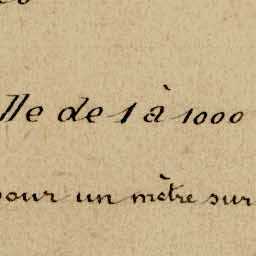 lle de 1 à 1000
pour un mètre sur